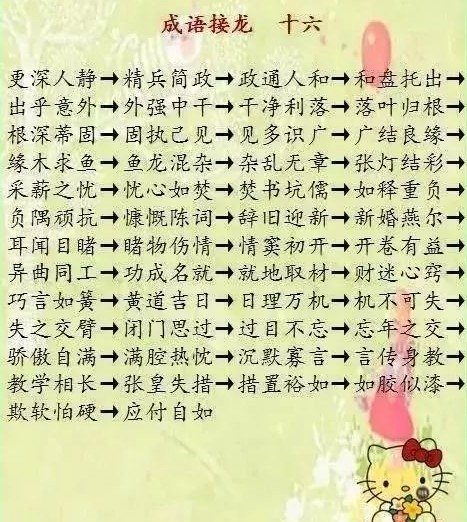 成语接龙 十六
更深人静→精兵简政→政通人和→和盘托出→
出乎意外→外强中干→干净利落→落叶归根→
根深蒂固→固执己见→见多识广→广结良缘→
缘木求鱼→鱼龙混杂→杂乱无章→张灯结彩→
采薪之忧→忧心如焚→焚书坑儒→如释重负→
负隅顽抗→慷慨陈词→辞旧迎新→新婚燕尔→
耳闻目睹→睹物伤情→情窦初开→开卷有益→
异曲同工→功成名就→就地取材→财迷心窍→
巧言如簧→黄道吉日→日理万机→机不可失→
失之交臂→闭门思过→过目不忘→忘年之交→
骄傲自满→满腔热忱→沉默寡言→言传身教→
教学相长→张皇失措→措置裕如→如胶似漆→
欺软怕硬→应付自如